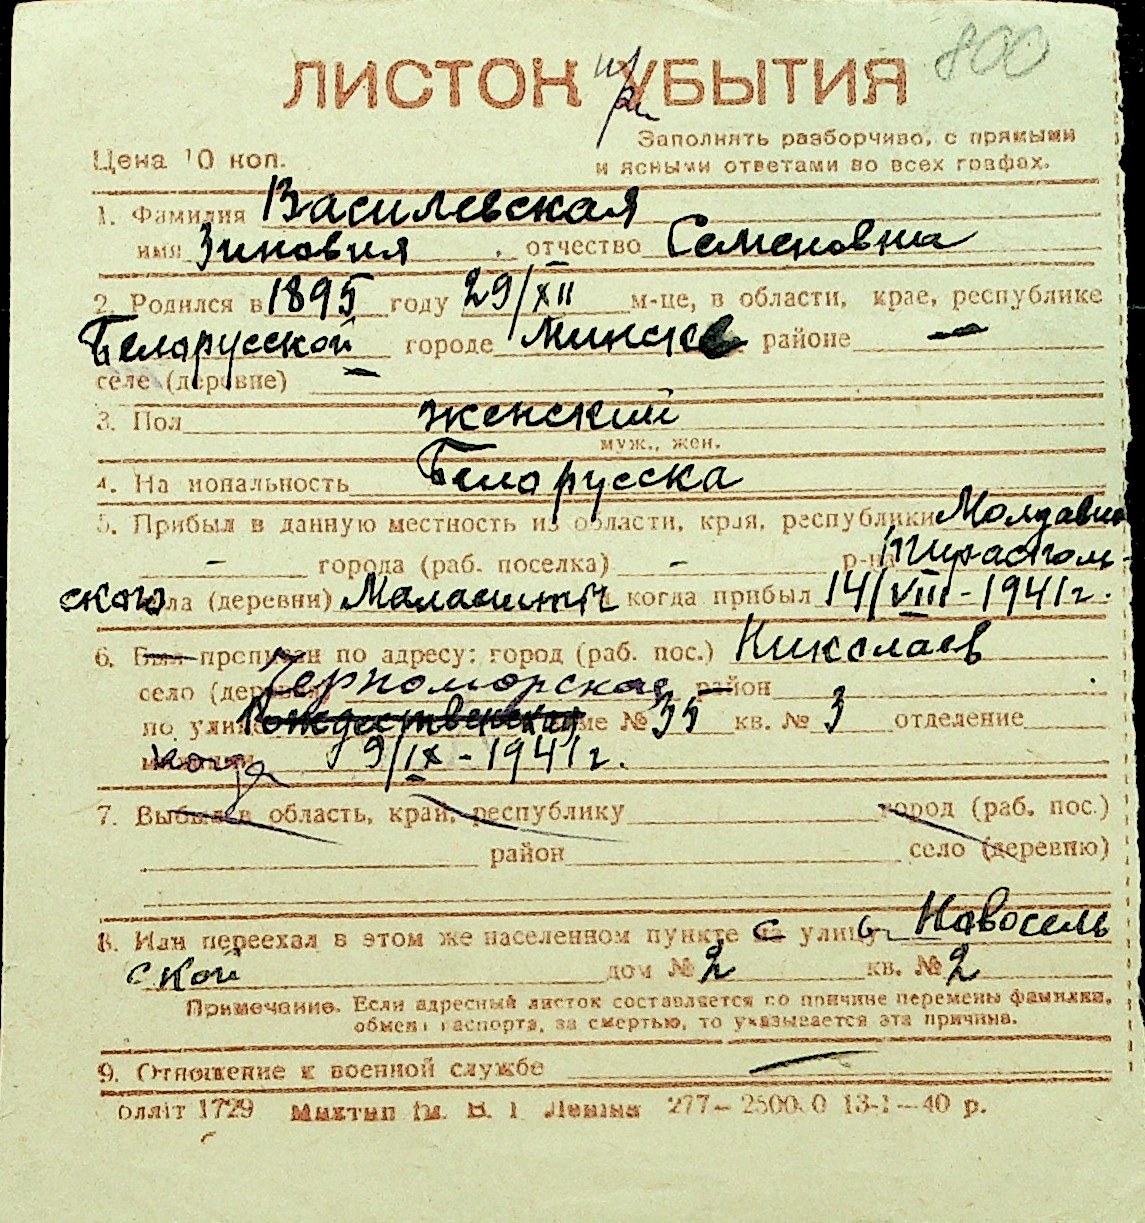 800
ЛИСТОК УБЫТИЯ
при
Заполнять разборчиво, с прямыми
Цена 10 коп.
и ясными ответами во всех графах.
1. Фамилия Василевская
имя Зиновия, отчество Семеновна
2. Родился в 1895 году 29/XII м-це, в области, крае, республике
Белорусской городе Минске районе —
селе (деревне) —
3. Пол женский
муж., жен.
4. На иональность Белорусска
5. Прибыл в данную местность из области, края, республики Молдавии
- города (раб. поселка) - р-на Тираспол-
ского ла (деревни) когда прибыл 14/VIII-1941 г.
6. Был прописан по адресу: город (раб. пос.) Николаев
село (деревня) Черноморская район —
по улице Рождественская ме № 35 кв. № 3 отделение
когда 9/IX-1941 г.
7. Выбыл в область, край, республику город (раб. пос.)
район село (деревню)
8. Или переехал в этом же населенном пункте с улицы Новосель
ской дом № 2 кв. № 2
Примечание. Если адресный листок составляется по причине перемены фамилии,
обмена паспорта, за смертью, то указывается эта причина.
9. Отношение к военной службе —
олліт 1729 Миктип ім. В. І Леніна 277—2500.0 13-1—40 р.